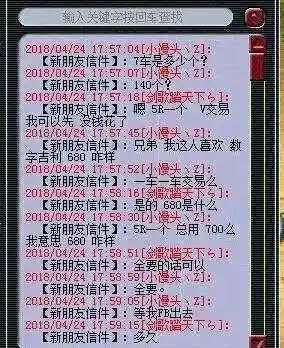 输入关键字按回车查找
2018/04/24 17:57:04[小馒头丶Z]:
【新朋友信件】: 7车是多少个?
2018/04/24 17:57:07[小馒头丶Z]:
【新朋友信件】: 140个?
2018/04/24 17:57:16[剑歌踏天下ら]:
【新朋友信件】: 嗯 5R一个 V交易
我可以先 没钱花了
2018/04/24 17:57:45[小馒头丶Z]:
【新朋友信件】: 兄弟 我这人喜欢 数
字吉利 680 咋样
2018/04/24 17:57:52[小馒头丶Z]:
【新朋友信件】: 一车一车交易么
2018/04/24 17:58:18[剑歌踏天下ら]:
【新朋友信件】: 是的 680是什么
2018/04/24 17:58:30[小馒头丶Z]:
【新朋友信件】: 5R一个 总用 700么
我意思 680 咋样
2018/04/24 17:58:51[剑歌踏天下ら]:
【新朋友信件】: 全要的话可以
2018/04/24 17:58:59[小馒头丶Z]:
【新朋友信件】: 全要。
2018/04/24 17:59:05[小馒头丶Z]:
【新朋友信件】: 等我FB出去
2018/04/24 17:59:15[剑歌踏天下ら]:
【新朋友信件】: 多久